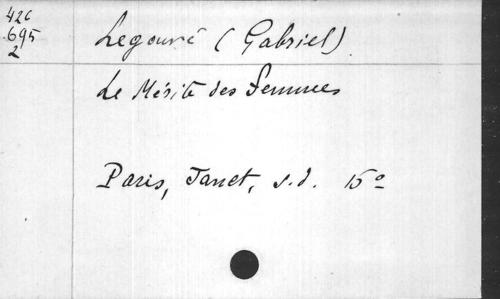 426
695
2
Legouvé (Gabriel)
Le Mérite des Femmes
Paris, Janet, s.d. 15°